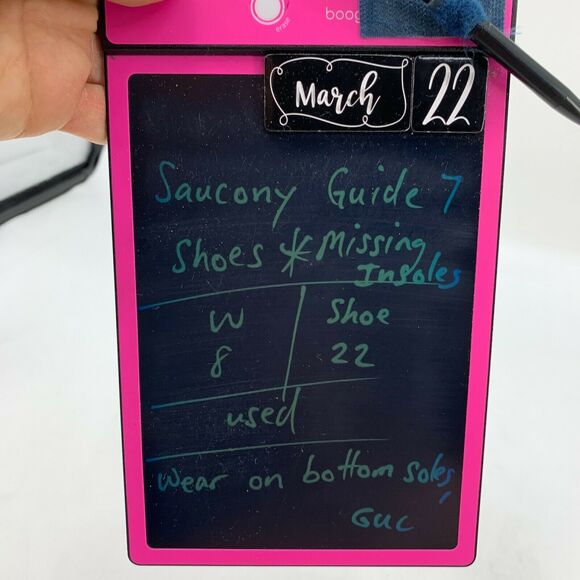 erase
boog
March 22
Saucony Guide 7
Shoes *Missing
Insoles
W Shoe
8 22
used
Wear on bottom soles,
GUC